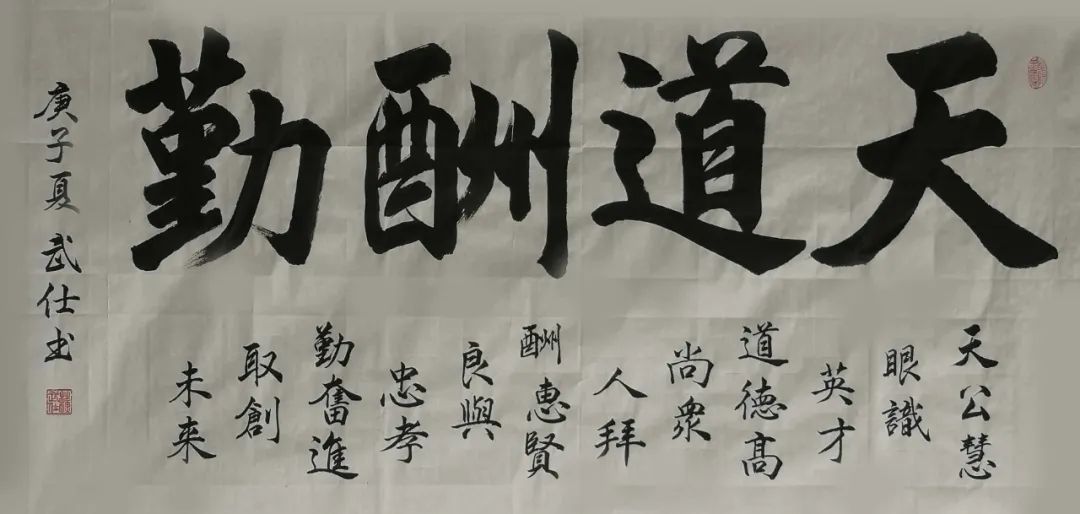 天道酬勤
天公慧
眼識
英才
道德高
尚眾
人拜
酬惠賢
良與
忠孝
勤奮進
取創
未来
庚子夏 武仕书